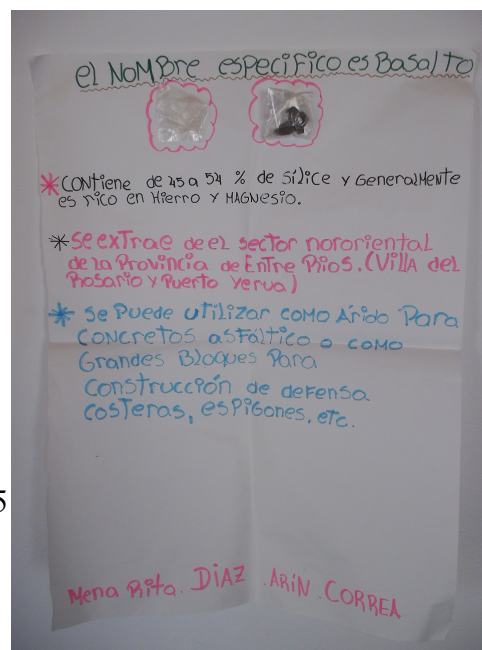 el NOMBre especiFico es Basalto
*CONTiene de 45 a 54 % de Sílice y GeneralMente
es rico en Hierro y MAGNesio.
*se extrae de el sector nororiental
de la Provincia de Entre Rios. (Villa del
Rosario y Puerto Yerua)
* se Puede utilizar como Árido Para
CONCRETOS asFáltico o como
Grandes Bloques Para
Construcción de defensa
COSTeras, esPigones, etc.
Mena Rita. DiAZ .ARiN.CORREA
5